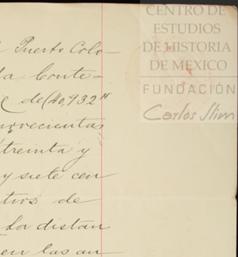 CENTRO DE
ESTUDIOS
DE HISTORIA
DE MEXICO
FUNDACIÓN
Carlos Slim
Puerto Colo-
la conte-
de (40,932"
novecientas
treinta y
y siete cen
tros de
La distan
en las an